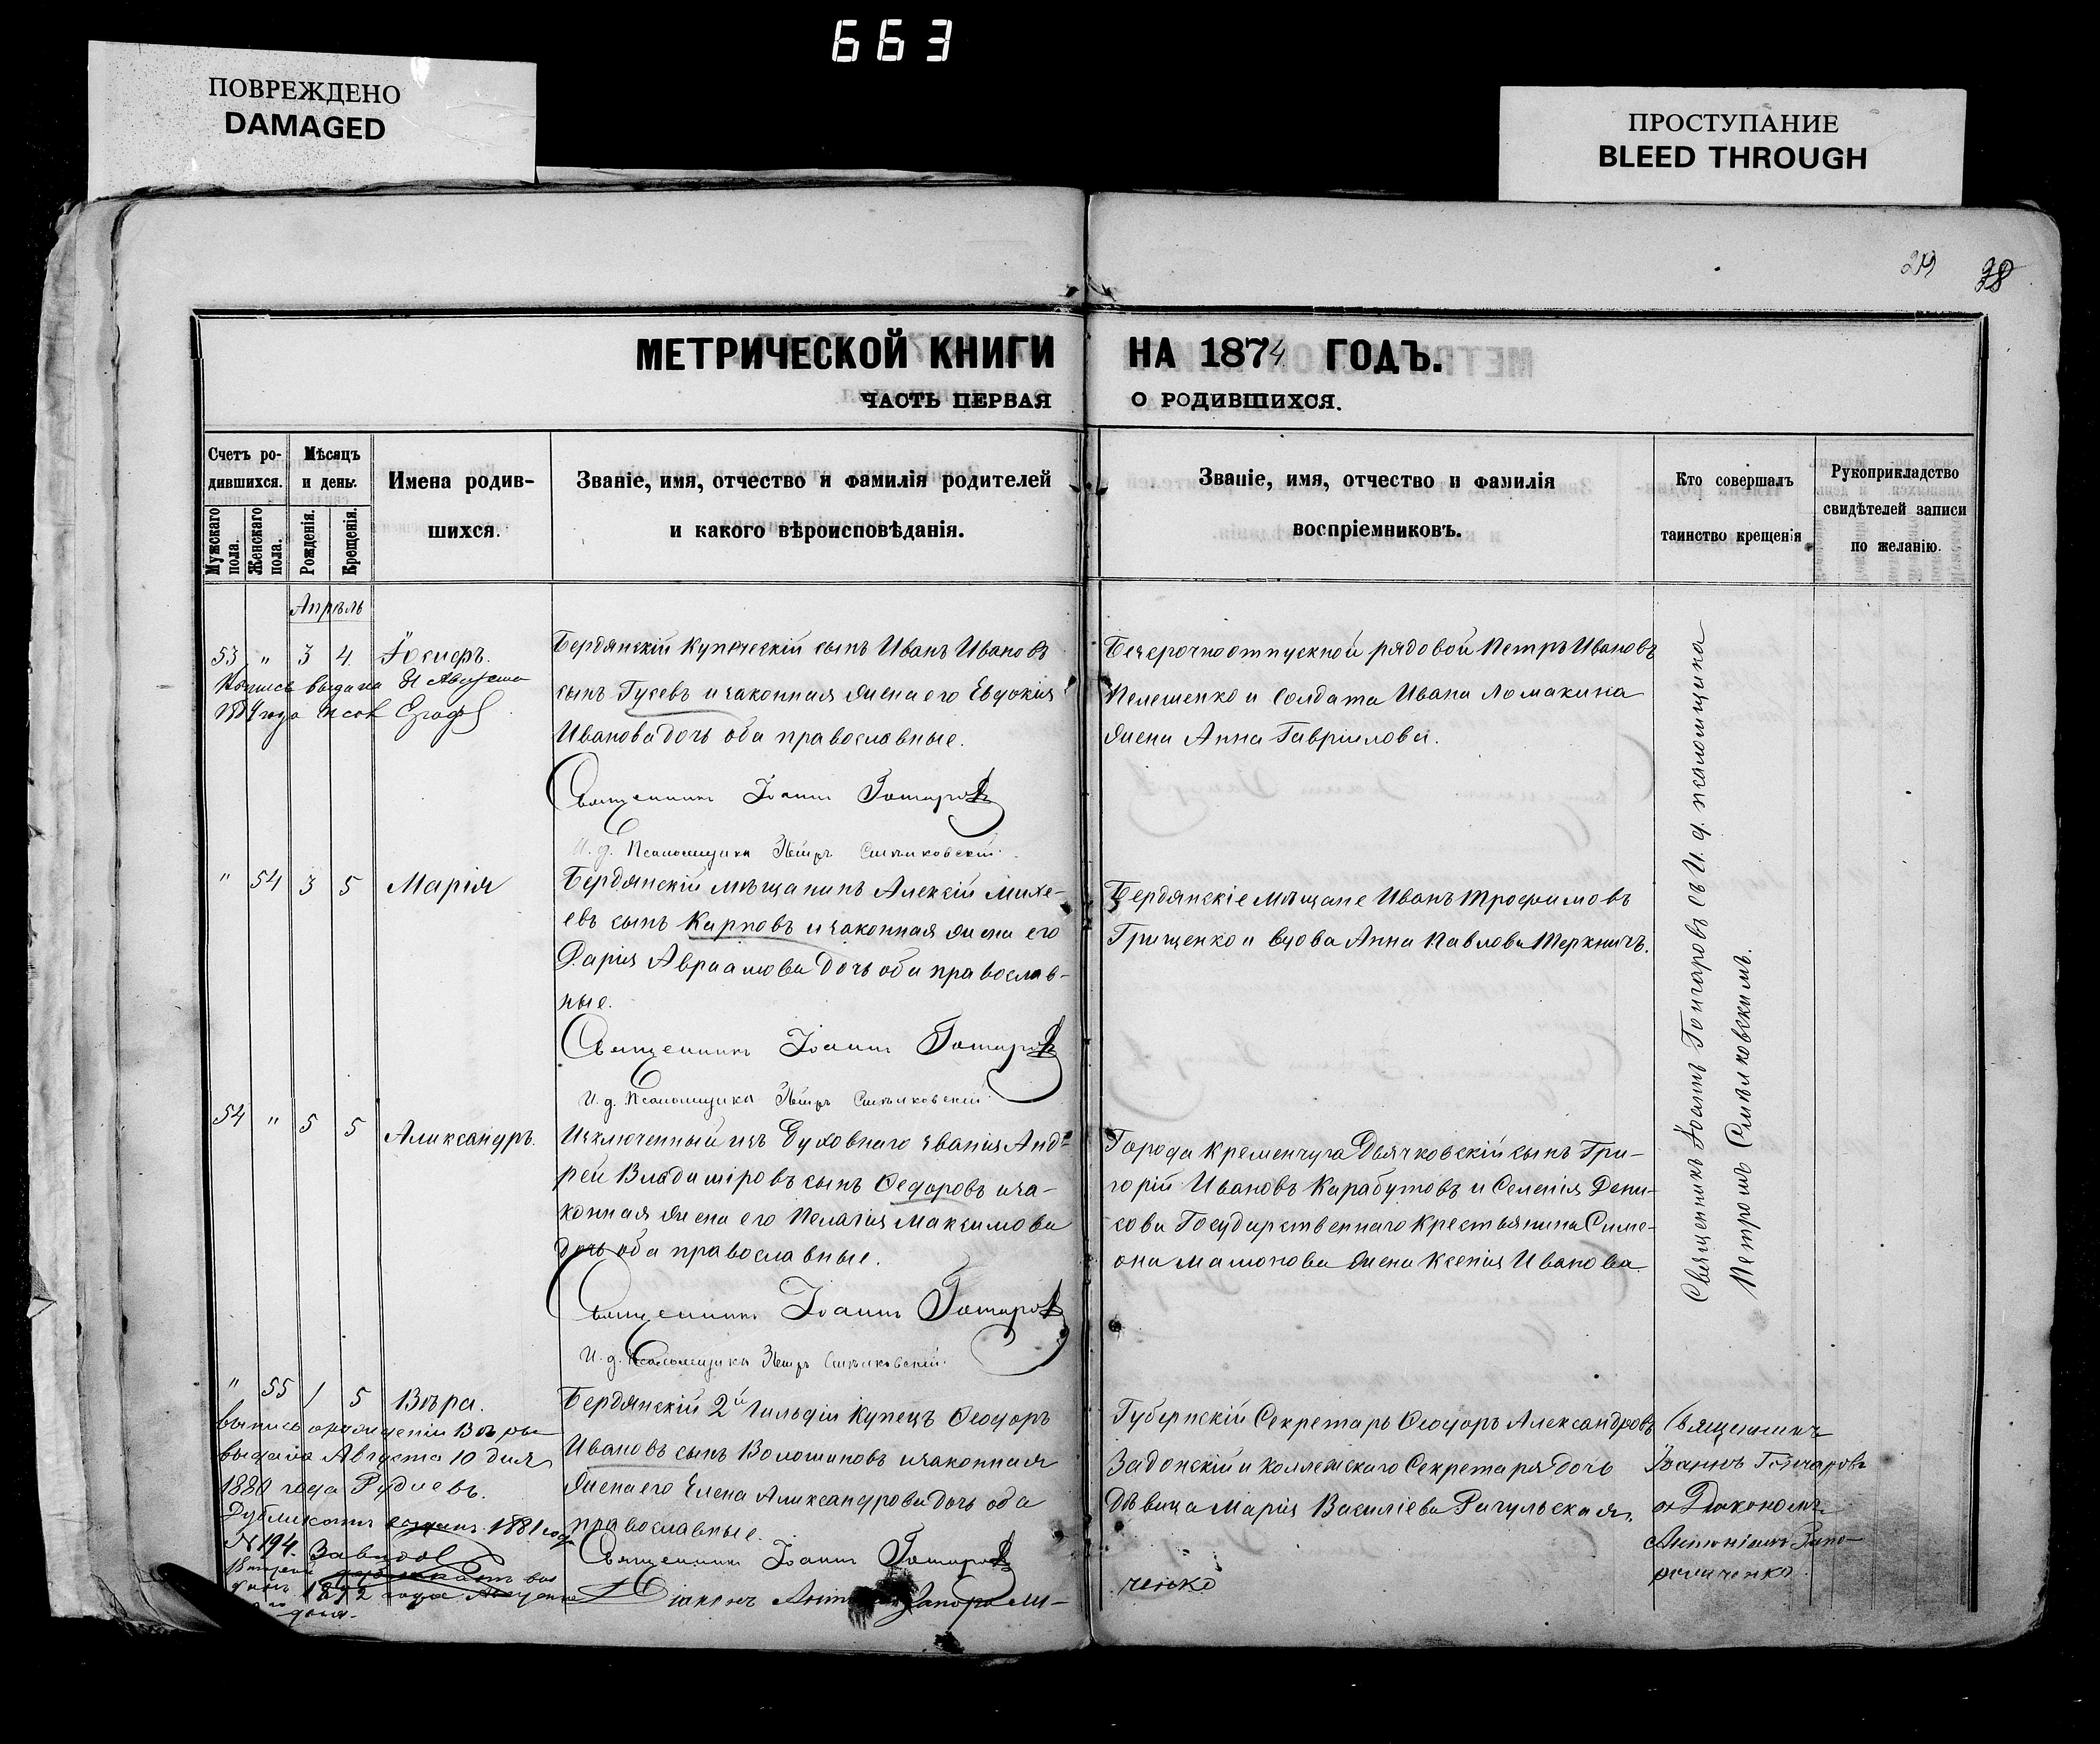 663
ПОВРЕЖДЕНО
DAMAGED
ПРОСТУПАНИЕ
BLEED THROUGH
38
МЕТРИЧЕСКОЙ КНИГИ НА 1874 ГОДЪ.
ЧАСТЬ ПЕРВАЯ О РОДИВШИХСЯ.
Счетъ ро-
дившихся.
Мужскаго пола.
Женскаго пола.
Мѣсяцъ
и день.
Рожденія.
Крещенія.
Имена родив-
шихся.
Званіе, имя, отчество и фамилія родителей
и какого вѣроисповѣданія.
Званіе, имя, отчество и фамилія
воспріемниковъ.
Кто совершалъ
таинство крещенія
Рукоприкладство
свидѣтелей записи
по желанію.
Апрѣль
53 " 3 4. Іосифъ.
выдана 31 Августа
Бердянскій купеческій сынъ Иванъ Ивановъ
сынъ Гусевъ и законная жена его Евдокія
Иванова дочь оба православные.
Священникъ Іоаннъ Гончаровъ
И. д. Псаломщика Петръ Смѣлковскій.
Безсрочноотпускной рядовой Петръ Ивановъ
Пелешенко и солдата Ивана Ломакина
жена Анна Гавріилова.
" 54 3 5 Марія
Бердянскій мѣщанинъ Алексій Михе-
евъ сынъ Карповъ и законная жена его
Дарія Авраамова дочь оба православ-
ные.
Священникъ Іоаннъ Гончаровъ
И. д. Псаломщика Петръ Смѣлковскій
Бердянскіе мѣщане Иванъ Трофимовъ
Грищенко и вдова Анна Павлова
54 " 5 5 Александръ.
Изключенный изъ Духовнаго званія Анд-
рей Владиміровъ сынъ Ѳедоровъ и за-
конная жена его Пелагія Максимова
дочь оба православные.
Священникъ Іоаннъ Гончаровъ
И. д. Псаломщика Петръ Смѣлковскій.
Города Кременчуга Дьячковскій сынъ Гри-
горій Ивановъ Карабутовъ и Селенія Дени-
сова Государственнаго Крестьянина Симе-
она Мамонова жена Ксенія Иванова
Священникъ Іоаннъ Гончаровъ съ И. д. псаломщика
Петромъ Смѣлковскимъ.
" 55 1 5 Вѣра.
выпись о рожденіи Вѣры
выдана Августа 10 дня
1880 года Рудневъ.
Дубликатъ 1881 года
№ 194.
1892 года
Бердянскій 2й Гильдіи Купецъ Ѳеодоръ
Ивановъ сынъ Волошиновъ и законная
жена его Елена Александрова дочь оба
православные.
Священникъ Іоаннъ Гончаровъ
Діаконъ Запорожченко
Губернскій Секретарь Ѳеодоръ Александровъ
Задонскій и коллежскаго Секретаря дочь
Дѣвица Марія Василіева Рагульская.
Священникъ
Іоаннъ Гончаровъ
съ Діакономъ
Антоніемъ Запо-